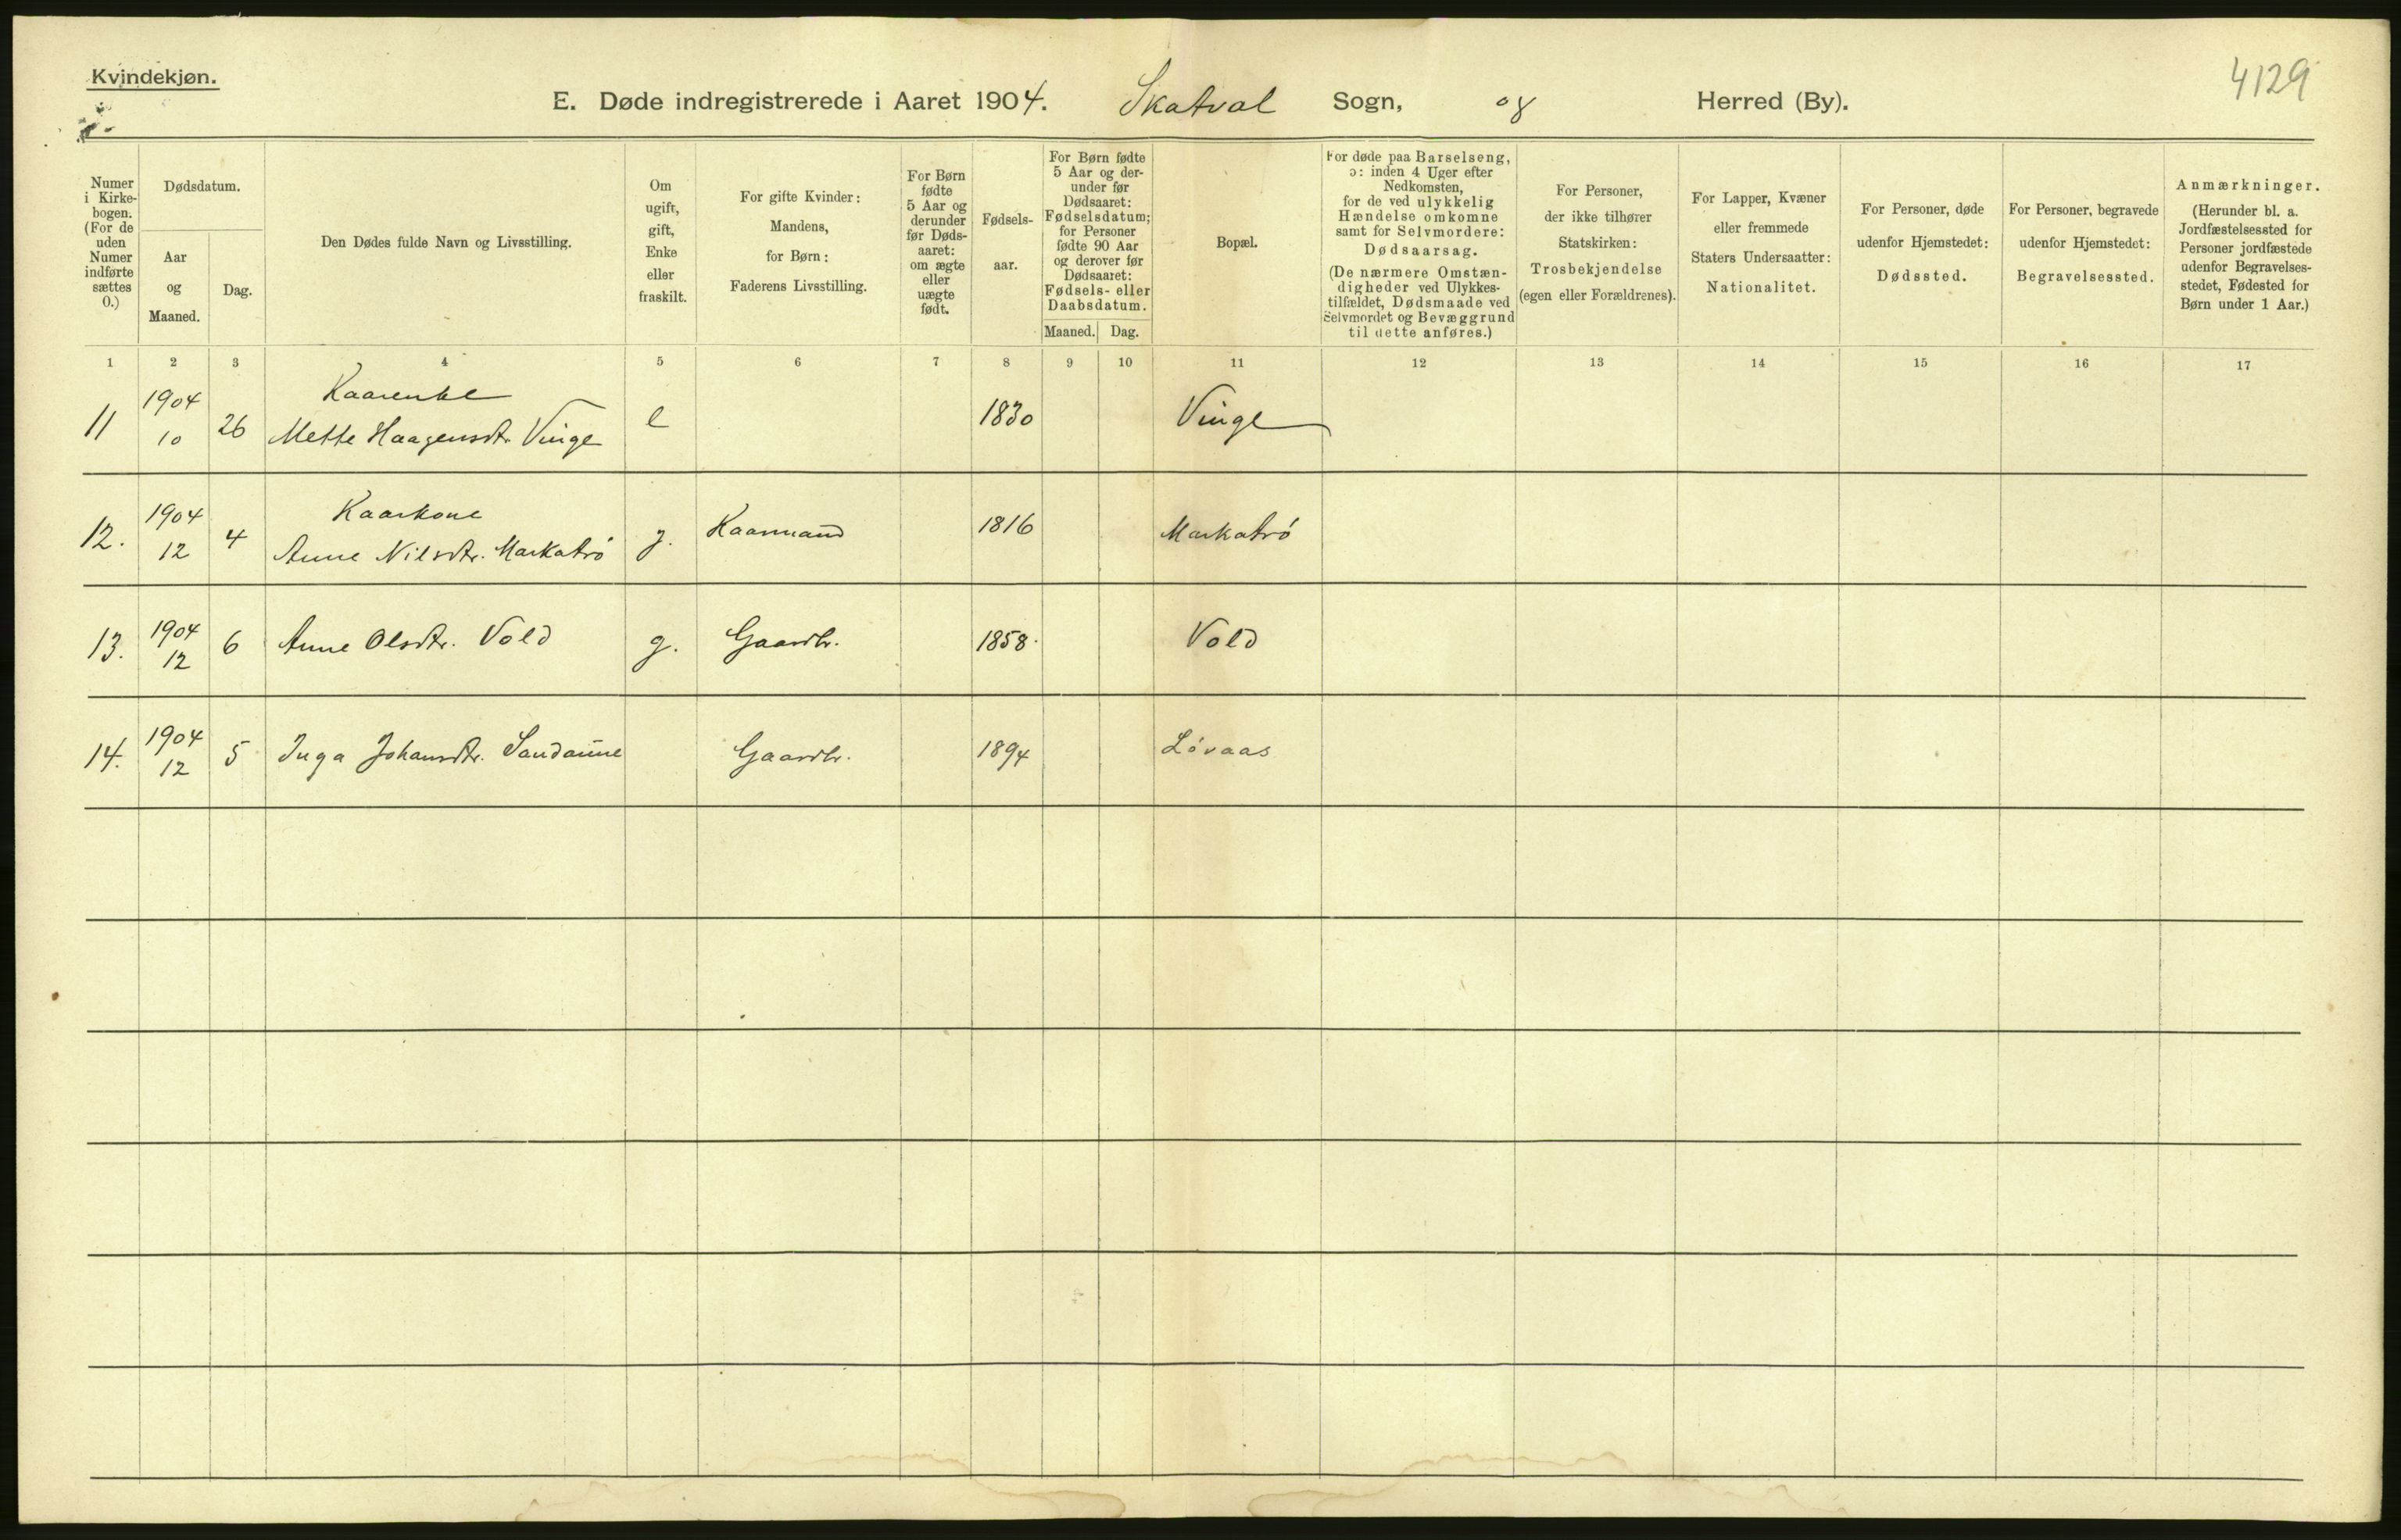 Kvindekjøn.
4129
E. Døde indregistrerede i Aaret 1904. Skatval Sogn, og Herred (By).
Numer i Kirkebogen. (For de uden Numer indførte sættes 0.)
Dødsdatum.
Aar og Maaned.
Dag.
Den Dødes fulde Navn og Livsstilling.
Om ugift, gift, Enke eller fraskilt.
For gifte Kvinder: Mandens, for Børn: Faderens Livsstilling.
For Børn fødte 5 Aar og derunder før Dødsaaret: om ægte eller uægte født.
Fødselsaar.
For Børn fødte 5 Aar og derunder før Dødsaaret: Fødselsdatum; for Personer fødte 90 Aar og derover før Dødsaaret: Fødsels- eller Daabsdatum.
Maaned. Dag.
Bopæl.
For døde paa Barselseng, ɔ: inden 4 Uger efter Nedkomsten, for de ved ulykkelig Hændelse omkomne samt for Selvmordere: Dødsaarsag. (De nærmere Omstændigheder ved Ulykkestilfældet, Dødsmaade ved Selvmordet og Bevæggrund til dette anføres.)
For Personer, der ikke tilhører Statskirken: Trosbekjendelse (egen eller Forældrenes).
For Lapper, Kvæner eller fremmede Staters Undersaatter: Nationalitet.
For Personer, døde udenfor Hjemstedet: Dødssted.
For Personer, begravede udenfor Hjemstedet: Begravelsessted.
Anmærkninger. (Herunder bl. a. Jordfæstelsessted for Personer jordfæstede udenfor Begravelsesstedet, Fødested for Børn under 1 Aar.)
1 2 3 4 5 6 7 8 9 10 11 12 13 14 15 16 17
Kaarenke
11 1904 10 26 Mette Haagensdtr. Vinge e 1830 Vinge
Kaarkone
12. 1904 12 4 Anne Nilsdtr. Markatrö g. Kaarmand 1816 Markatrö
13. 1904 12 6 Anne Olsdtr. Vold g. Gaardbr. 1858. Vold
14. 1904 12 5 Inga Johansdtr. Sandanne Gaardbr. 1894 Lövaas